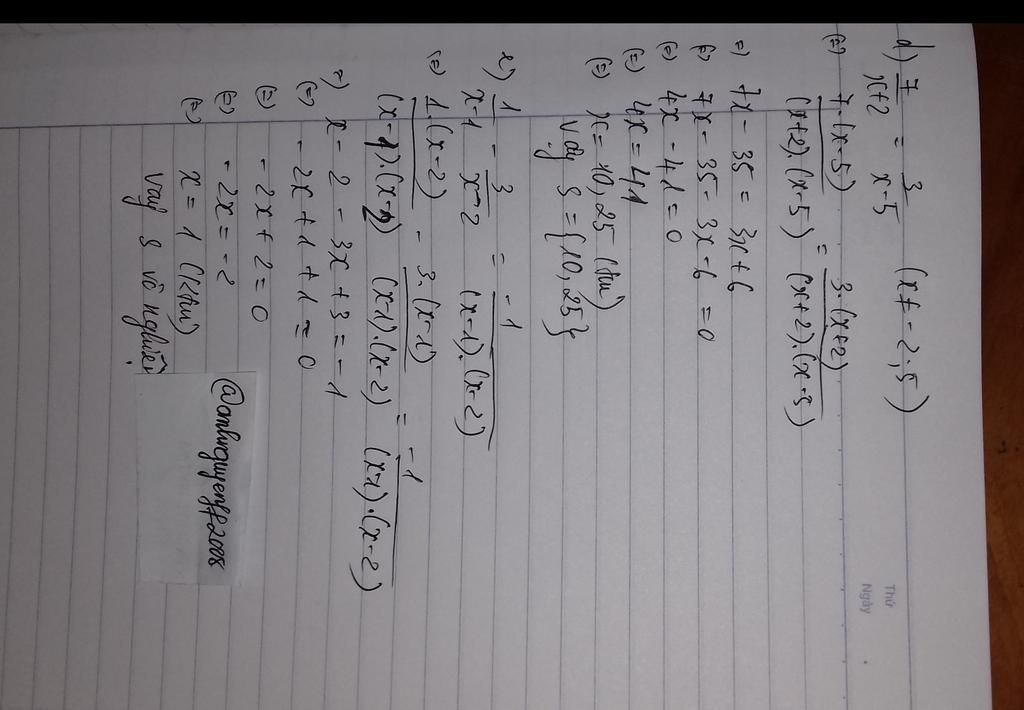 Thứ
Ngày
d) 7/(x+2) = 3/(x-5) (x ≠ -2; 5)
(=) 7.(x-5)/(x+2).(x-5) = 3.(x+2)/(x+2).(x-5)
=) 7x - 35 = 3x + 6
(=) 7x - 35 - 3x - 6 = 0
(=) 4x - 41 = 0
(=) 4x = 41
(=) x = 10,25 (tm)
Vậy S = {10,25}
e) 1/(x-1) - 3/(x-2) = -1/(x-1).(x-2)
(=) 1.(x-2)/(x-1).(x-2) - 3.(x-1)/(x-1).(x-2) = -1/(x-1).(x-2)
=) x - 2 - 3x + 3 = -1
(=) -2x + 1 + 1 = 0
(=) -2x + 2 = 0
(=) -2x = -2
(=) x = 1 (Ktm)
Vậy S vô nghiệm